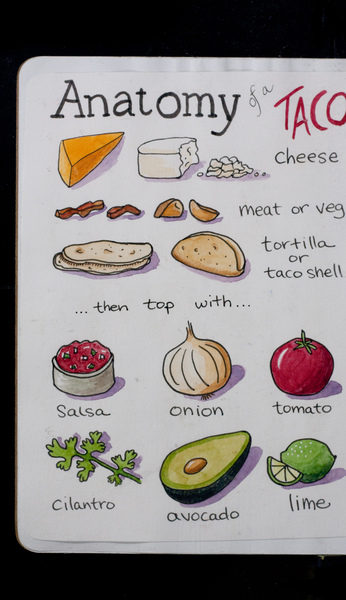 Anatomy of a TACO
cheese
meat or veg
tortilla
or
taco shell
...then top with...
Salsa
onion
tomato
cilantro
avocado
lime